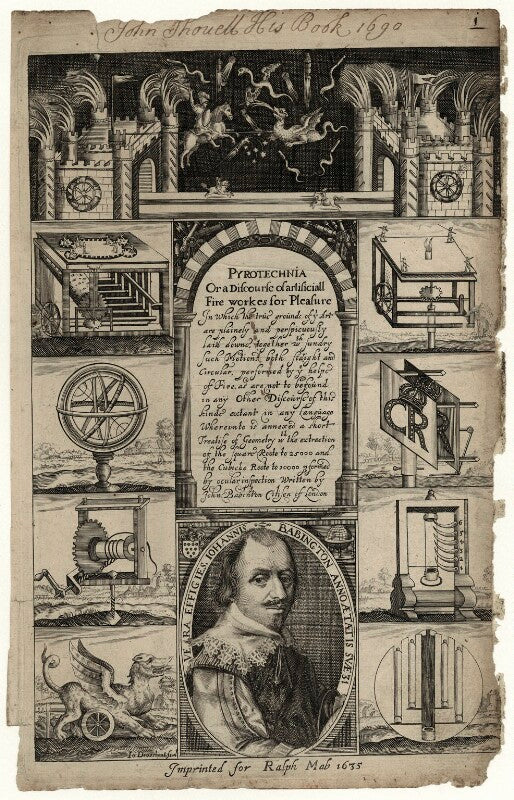 John Thouell His Book 1690
1
PYROTECHNIA
Or a Discourse of artificiall
Fire workes for Pleasure
In which the true grounds of yͤ Art
are plainely and perspicuously
laid downe, together wͭʰ sundry
such Motions, both straight and
Circular, performed by yͤ helpe
of Fire, as are not to be found
in any Other Discourse of this
kinde extant in any Language
Whereunto is annexed a short
Treatise of Geometry wͭʰ the extraction
of the Square Roote to 25000 and
the Cubicke Roote to 10000
by ocular inspection Written by
John Babington Citizen of London
VERA EFFIGIES IOHANNIS BABINGTON ANNO ÆTATIS SVÆ 31
CR
Io Droeshout
Imprinted for Ralph Mab 1635